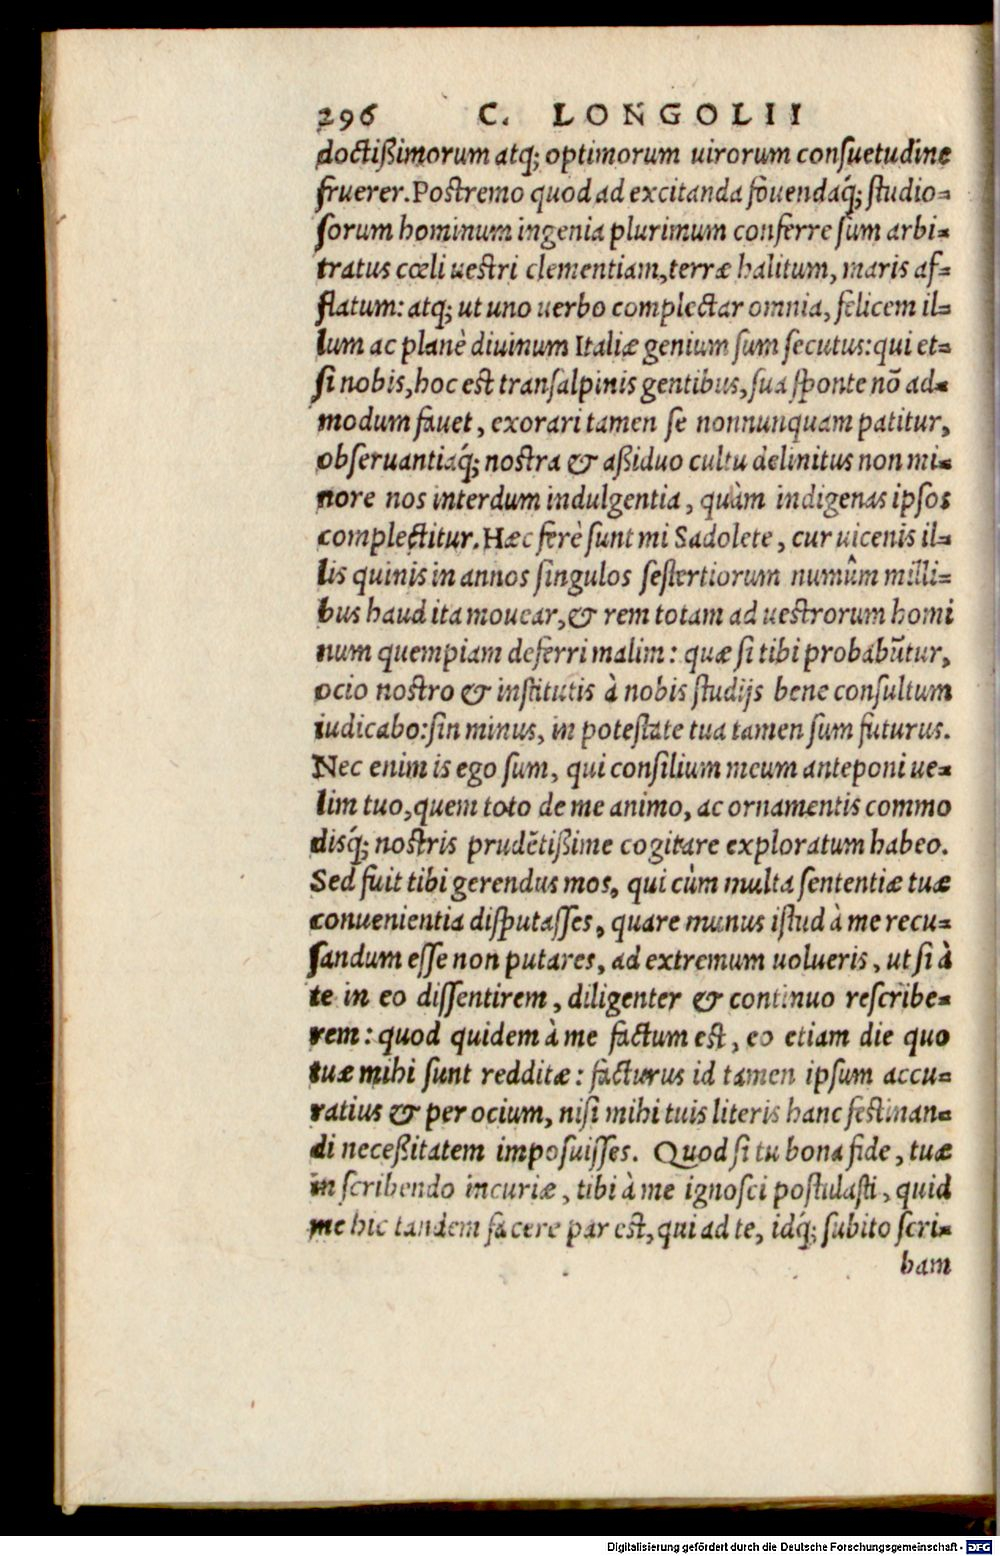 296 C. LONGOLII
doctißimorum atq; optimorum uirorum consuetudine
fruerer. Postremo quod ad excitanda fouendaq́; studio-
sorum hominum ingenia plurimum conferre sum arbi-
tratus cœli uestri clementiam, terræ halitum, maris af-
flatum: atq; ut uno uerbo complectar omnia, felicem il-
lum ac planè diuinum Italiæ genium sum secutus: qui et-
si nobis, hoc est transalpinis gentibus, sua sponte nō ad-
modum fauet, exorari tamen se nonnunquam patitur,
obseruantiaq́; nostra & aßiduo cultu delinitus non mi-
nore nos interdum indulgentia, quàm indigenas ipsos
complectitur. Hæc ferè sunt mi Sadolete, cur uicenis il-
lis quinis in annos singulos sestertiorum numûm milli-
bus haud ita mouear, & rem totam ad uestrorum homi
num quempiam deferri malim: quæ si tibi probabūtur,
ocio nostro & institutis à nobis studijs bene consultum
iudicabo: sin minus, in potestate tua tamen sum futurus.
Nec enim is ego sum, qui consilium meum anteponi ue-
lim tuo, quem toto de me animo, ac ornamentis commo
disq́; nostris prudētißime cogitare exploratum habeo.
Sed fuit tibi gerendus mos, qui cùm multa sententiæ tuæ
conuenientia disputasses, quare munus istud à me recu-
sandum esse non putares, ad extremum uolueris, ut si à
te in eo dissentirem, diligenter & continuo rescribe-
rem: quod quidem à me factum est, eo etiam die quo
tuæ mihi sunt redditæ: facturus id tamen ipsum accu-
ratius & per ocium, nisi mihi tuis literis hanc festinan-
di neceßitatem imposuisses. Quod si tu bona fide, tuæ
in scribendo incuriæ, tibi à me ignosci postulasti, quid
me hic tandem facere par est, qui ad te, idq́; subito scri-
bam
Digitalisierung gefördert durch die Deutsche Forschungsgemeinschaft - DFG